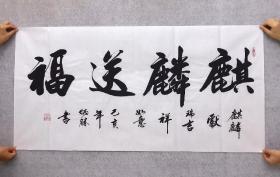 麒麟送福
麒麟
献
瑞吉
祥
如意
己亥
年
书